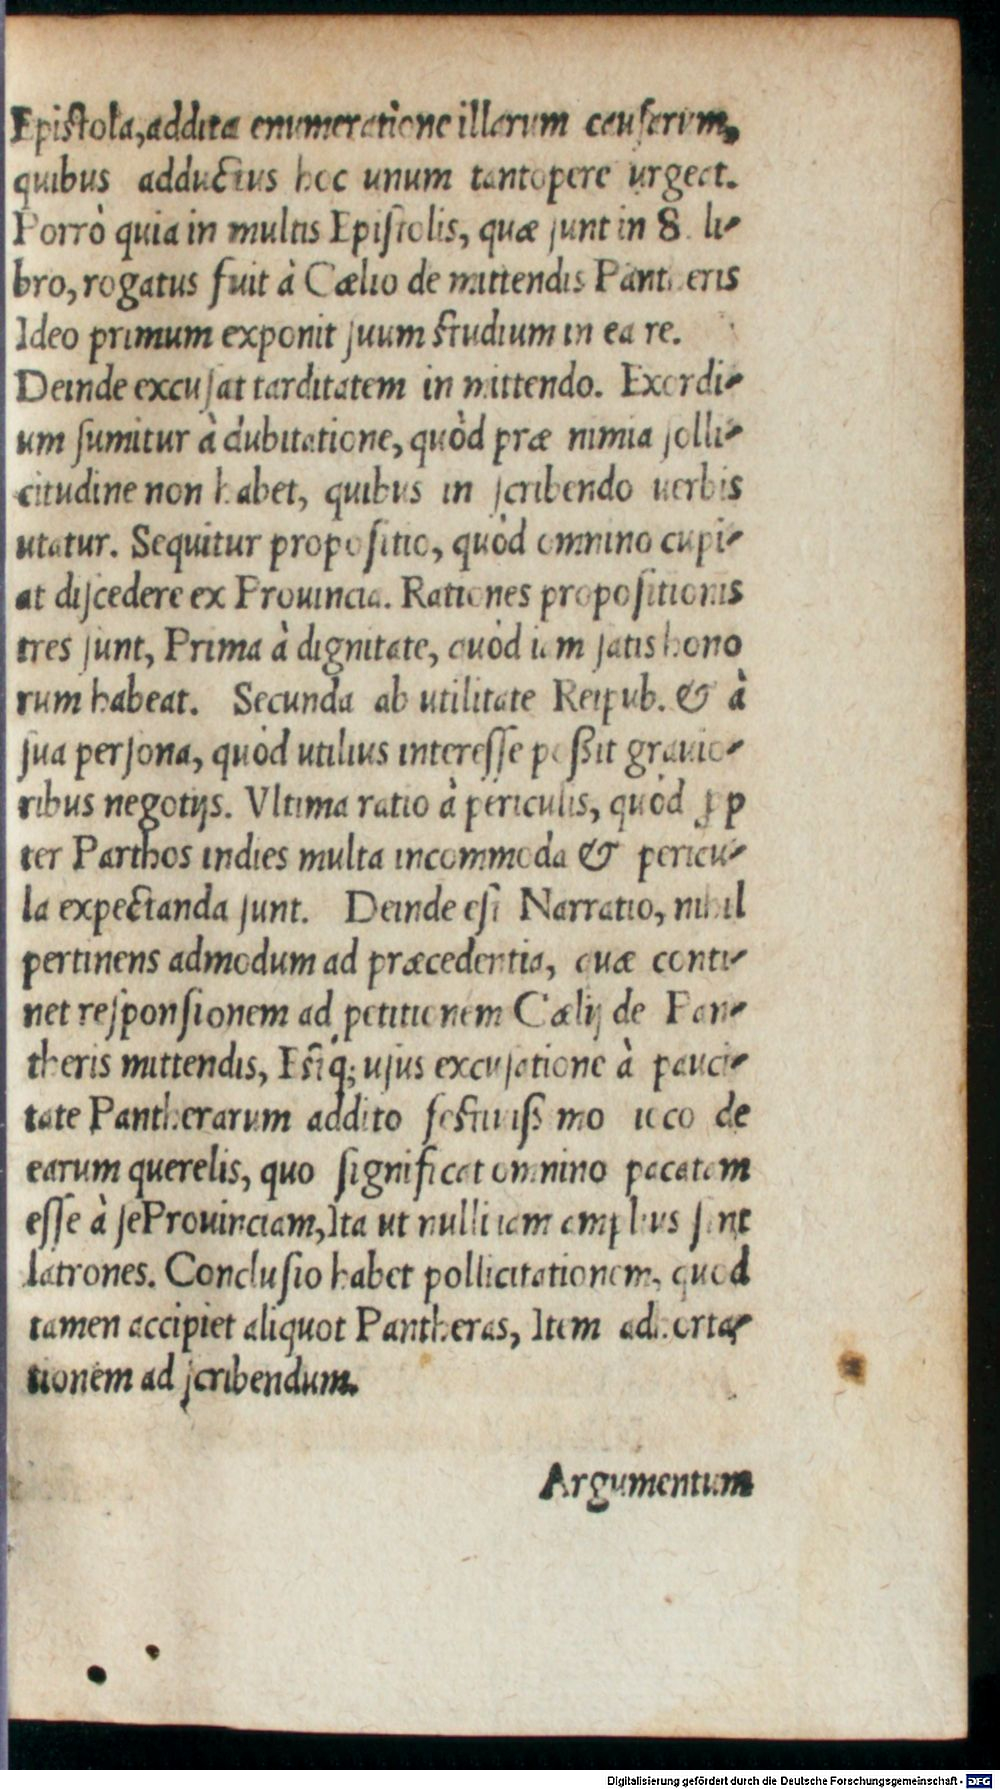 Epistola, addita enumeratione illarum causarum,
quibus adductus hoc unum tantopere urgeat.
Porrò quia in multis Epistolis, quæ sunt in 8. li-
bro, rogatus fuit à Cælio de mittendis Pantheris
Ideo primum exponit suum studium in ea re.
Deinde excusat tarditatem in mittendo. Exordi-
um sumitur à dubitatione, quòd præ nimia solli-
citudine non habet, quibus in scribendo uerbis
utatur. Sequitur propositio, quòd omnino cupi-
at discedere ex Prouincia. Rationes propositionis
tres sunt, Prima à dignitate, quòd iam satis hono
rum habeat. Secunda ab utilitate Reipub. & à
sua persona, quòd utilius interesse poßit grauio-
ribus negotijs. Vltima ratio à periculis, quòd ꝓp
ter Parthos indies multa incommoda & pericu-
la expectanda sunt. Deinde est Narratio, nihil
pertinens admodum ad præcedentia, quæ conti-
net responsionem ad petitionem Cælij de Pan-
theris mittendis, Estq; usus excusatione à pauci-
tate Pantherarum addito festiuißmo ioco de
earum querelis, quo significat omnino pacatam
esse à se Prouinciam, Ita ut nulli iam amplius sint
latrones. Conclusio habet pollicitationem, quod
tamen accipiet aliquot Pantheras, Item adhorta-
tionem ad scribendum.
Argumentum
Digitalisierung gefördert durch die Deutsche Forschungsgemeinschaft - DFG